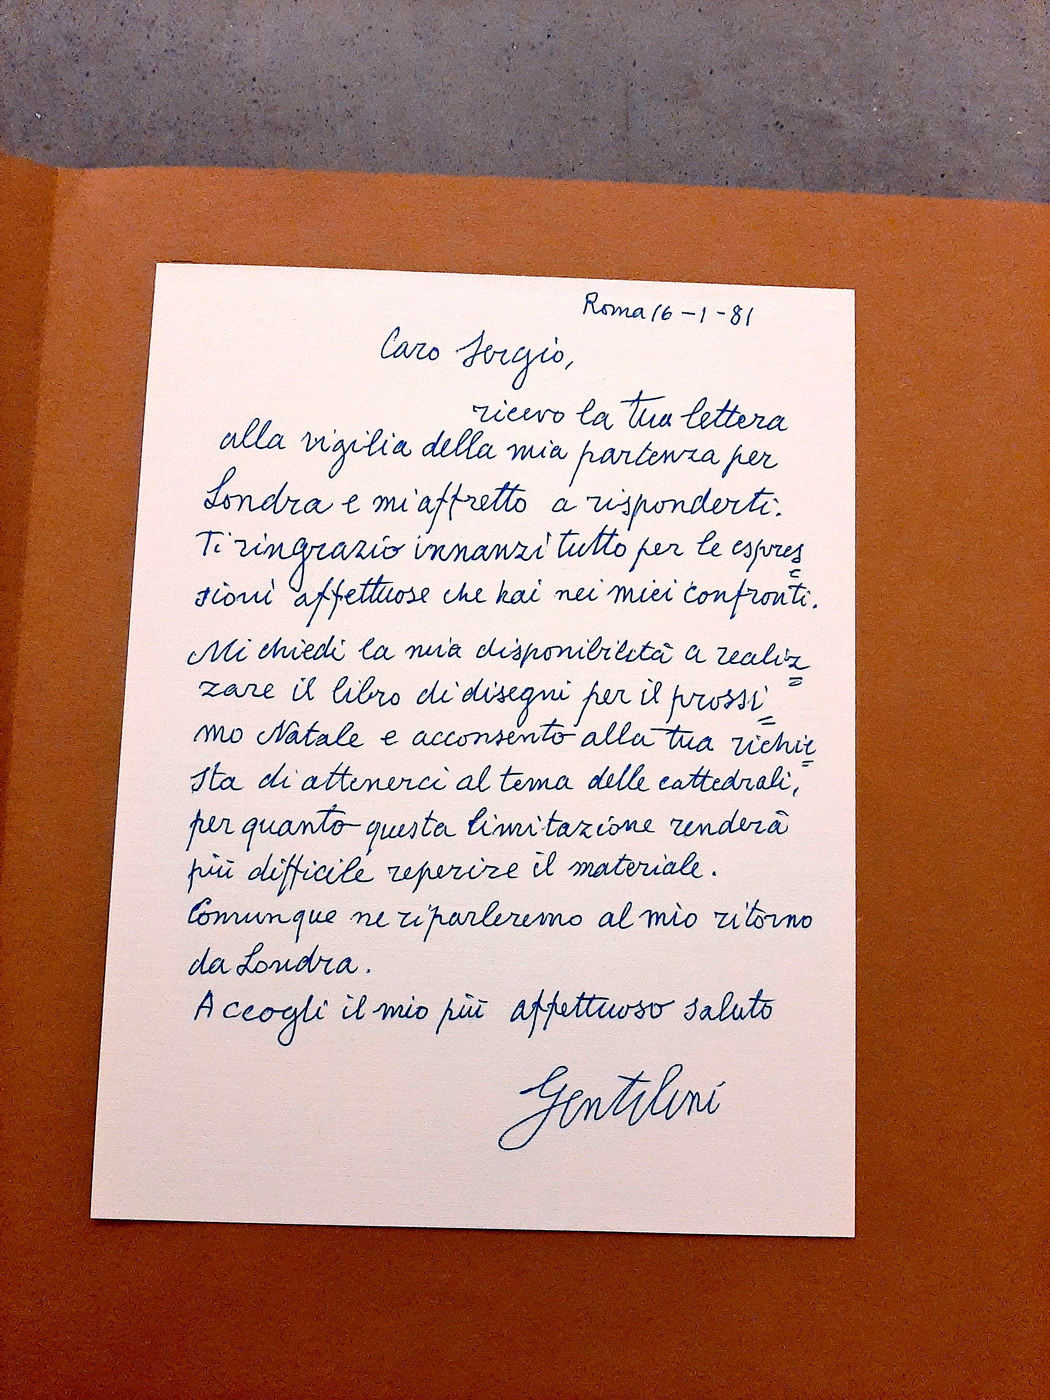 Roma 16-1-81
Caro Sergio,
ricevo la tua lettera
alla vigilia della mia partenza per
Londra e mi affretto a risponderti.
Ti ringrazio innanzi tutto per le espres=
sioni affettuose che hai nei miei confronti.
Mi chiedi la mia disponibilità a realiz=
zare il libro di disegni per il prossi=
mo Natale e acconsento alla tua richie=
sta di attenerci al tema delle cattedrali,
per quanto questa limitazione renderà
più difficile reperire il materiale.
Comunque ne riparleremo al mio ritorno
da Londra.
Accogli il mio più affettuoso saluto
Gentilini